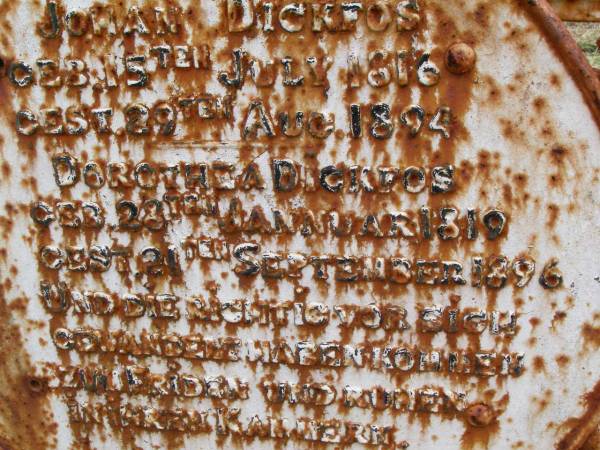 JOHAN DICKFOS
GEB. 15TEN JULY 1816
GEST. 29TEN AUG. 1894
DOROTHEA DICKFOS
GEB. 28TEN JANNUAR 1819
GEST. 21TEN SEPTEMBER 1896
UND DIE RICHTIG VOR SICH
GEWANDELT HABEN KOMMEN
ZUM FRIDEN UND RUHEN
IN IHREN KAMMERN.